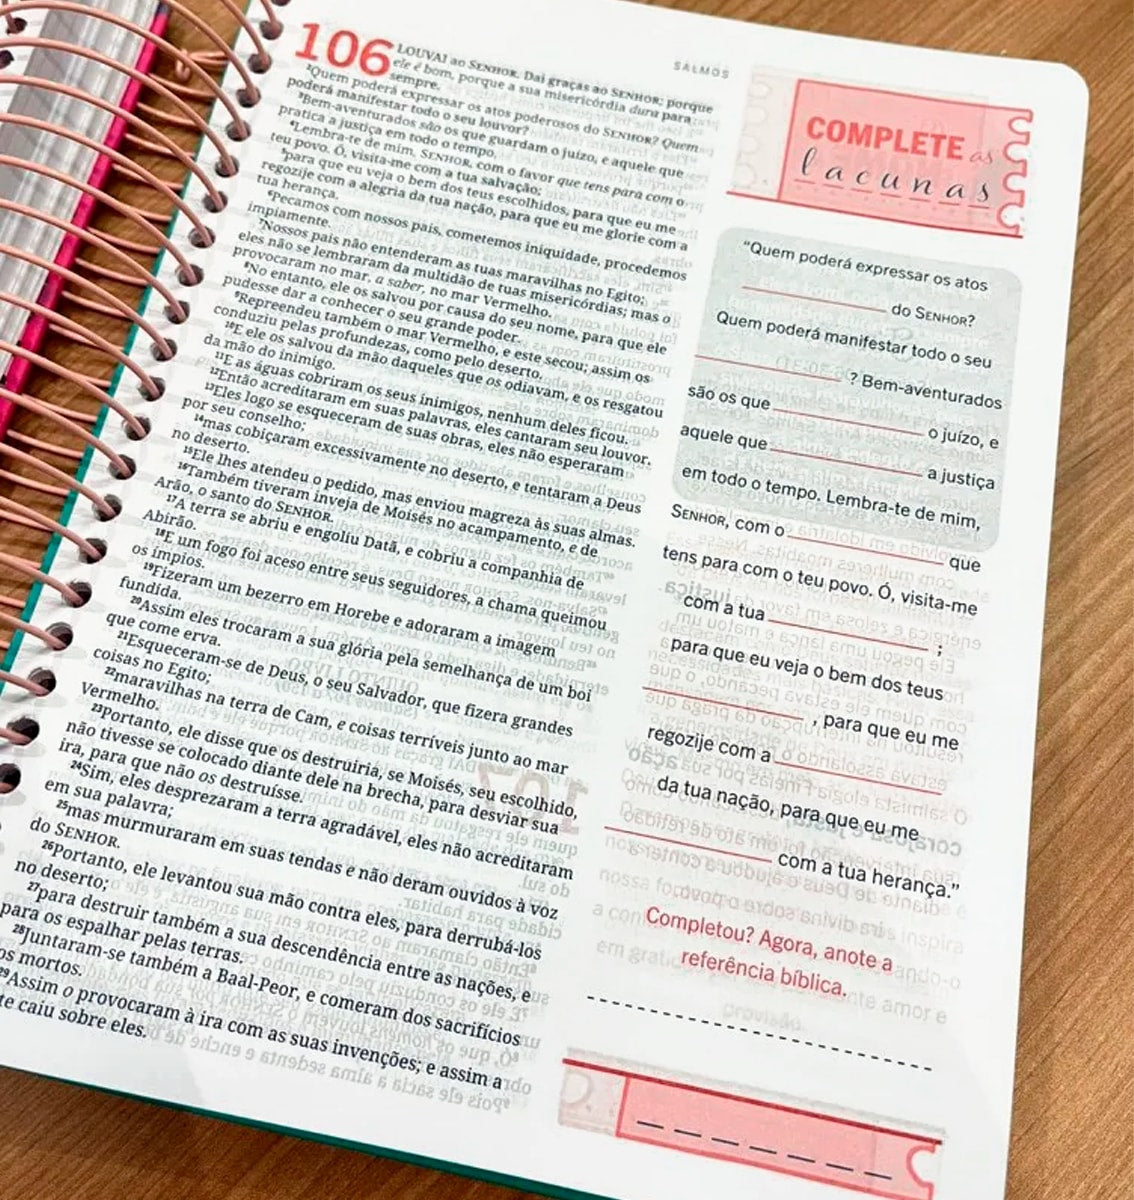 SALMOS
106 LOUVAI ao SENHOR. Dai graças ao SENHOR; porque
ele é bom, porque a sua misericórdia dura para
sempre.
²Quem poderá expressar os atos poderosos do SENHOR? Quem
poderá manifestar todo o seu louvor?
³Bem-aventurados são os que guardam o juízo, e aquele que
pratica a justiça em todo o tempo.
⁴Lembra-te de mim, SENHOR, com o favor que tens para com o
teu povo. Ó, visita-me com a tua salvação;
⁵para que eu veja o bem dos teus escolhidos, para que eu me
regozije com a alegria da tua nação, para que eu me glorie com a
tua herança.
⁶Pecamos com nossos pais, cometemos iniquidade, procedemos
impiamente.
⁷Nossos pais não entenderam as tuas maravilhas no Egito;
eles não se lembraram da multidão de tuas misericórdias; mas o
provocaram no mar, a saber, no mar Vermelho.
⁸No entanto, ele os salvou por causa do seu nome, para que ele
pudesse dar a conhecer o seu grande poder.
⁹Repreendeu também o mar Vermelho, e este secou; assim os
conduziu pelas profundezas, como pelo deserto.
¹⁰E ele os salvou da mão daqueles que os odiavam, e os resgatou
da mão do inimigo.
¹¹E as águas cobriram os seus inimigos, nenhum deles ficou.
¹²Então acreditaram em suas palavras, eles cantaram seu louvor.
¹³Eles logo se esqueceram de suas obras, eles não esperaram
por seu conselho;
¹⁴mas cobiçaram excessivamente no deserto, e tentaram a Deus
no deserto.
¹⁵Ele lhes atendeu o pedido, mas enviou magreza às suas almas.
¹⁶Também tiveram inveja de Moisés no acampamento, e de
Arão, o santo do SENHOR.
¹⁷A terra se abriu e engoliu Datã, e cobriu a companhia de
Abirão.
¹⁸E um fogo foi aceso entre seus seguidores, a chama queimou
os ímpios.
¹⁹Fizeram um bezerro em Horebe e adoraram a imagem
fundida.
²⁰Assim eles trocaram a sua glória pela semelhança de um boi
que come erva.
²¹Esqueceram-se de Deus, o seu Salvador, que fizera grandes
coisas no Egito;
²²maravilhas na terra de Cam, e coisas terríveis junto ao mar
Vermelho.
²³Portanto, ele disse que os destruiria, se Moisés, seu escolhido,
não tivesse se colocado diante dele na brecha, para desviar sua
ira, para que não os destruísse.
²⁴Sim, eles desprezaram a terra agradável, eles não acreditaram
em sua palavra;
²⁵mas murmuraram em suas tendas e não deram ouvidos à voz
do SENHOR.
²⁶Portanto, ele levantou sua mão contra eles, para derrubá-los
no deserto;
²⁷para destruir também a sua descendência entre as nações, e
para os espalhar pelas terras.
²⁸Juntaram-se também a Baal-Peor, e comeram dos sacrifícios
os mortos.
²⁹Assim o provocaram à ira com as suas invenções; e assim a
te caiu sobre eles.
COMPLETE as
lacunas
“Quem poderá expressar os atos
do SENHOR?
Quem poderá manifestar todo o seu
? Bem-aventurados
são os que o juízo, e
aquele que a justiça
em todo o tempo. Lembra-te de mim,
SENHOR, com o que
tens para com o teu povo. Ó, visita-me
com a tua ;
para que eu veja o bem dos teus
, para que eu me
regozije com a
da tua nação, para que eu me
com a tua herança.”
Completou? Agora, anote a
referência bíblica.